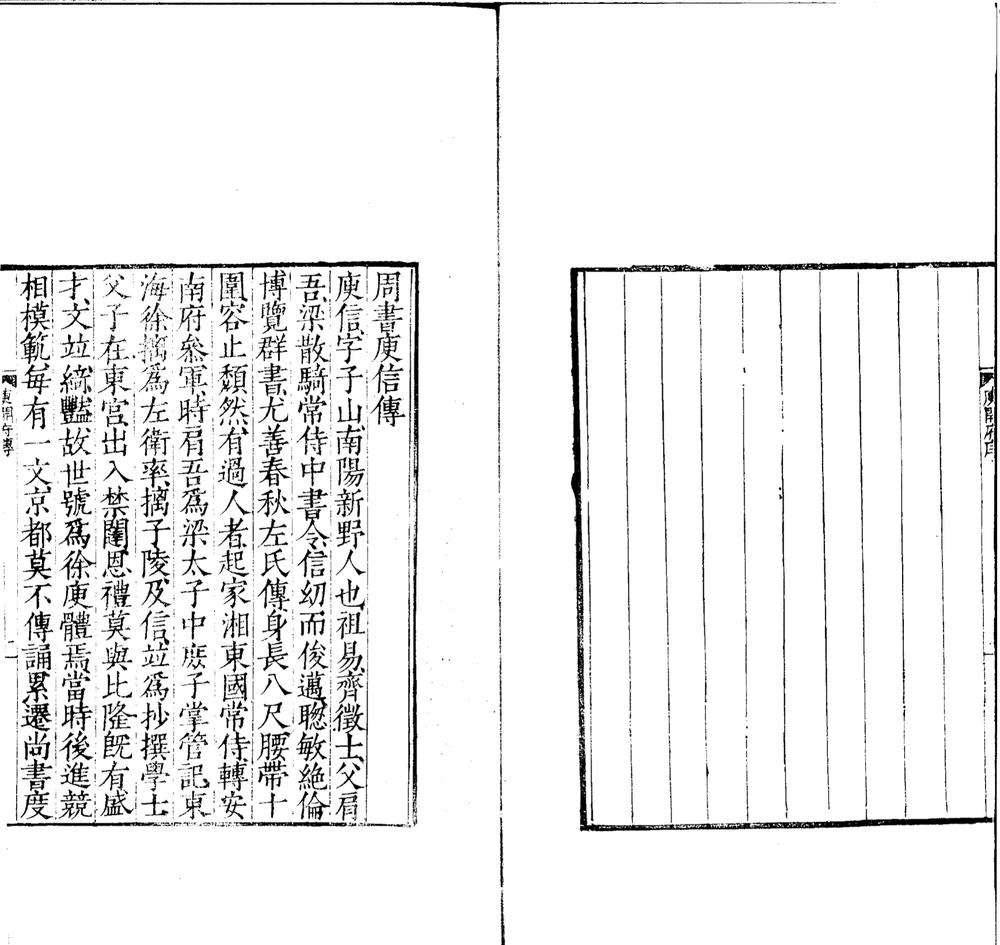 庾開府序
周書庾信傳
庾信字子山南陽新野人也祖易齊徵士父肩
吾梁散騎常侍中書令信幼而俊邁聰敏絕倫
博覽群書尤善春秋左氏傳身長八尺腰帶十
圍容止頹然有過人者起家湘東國常侍轉安
南府參軍時肩吾爲梁太子中庶子掌管記東
海徐摛爲左衛率摛子陵及信並爲抄撰學士
父子在東宮出入禁闥恩禮莫與比隆既有盛
才文並綺豔故世號爲徐庾體焉當時後進競
相模範每有一文京都莫不傳誦累遷尚書度
庾開府傳